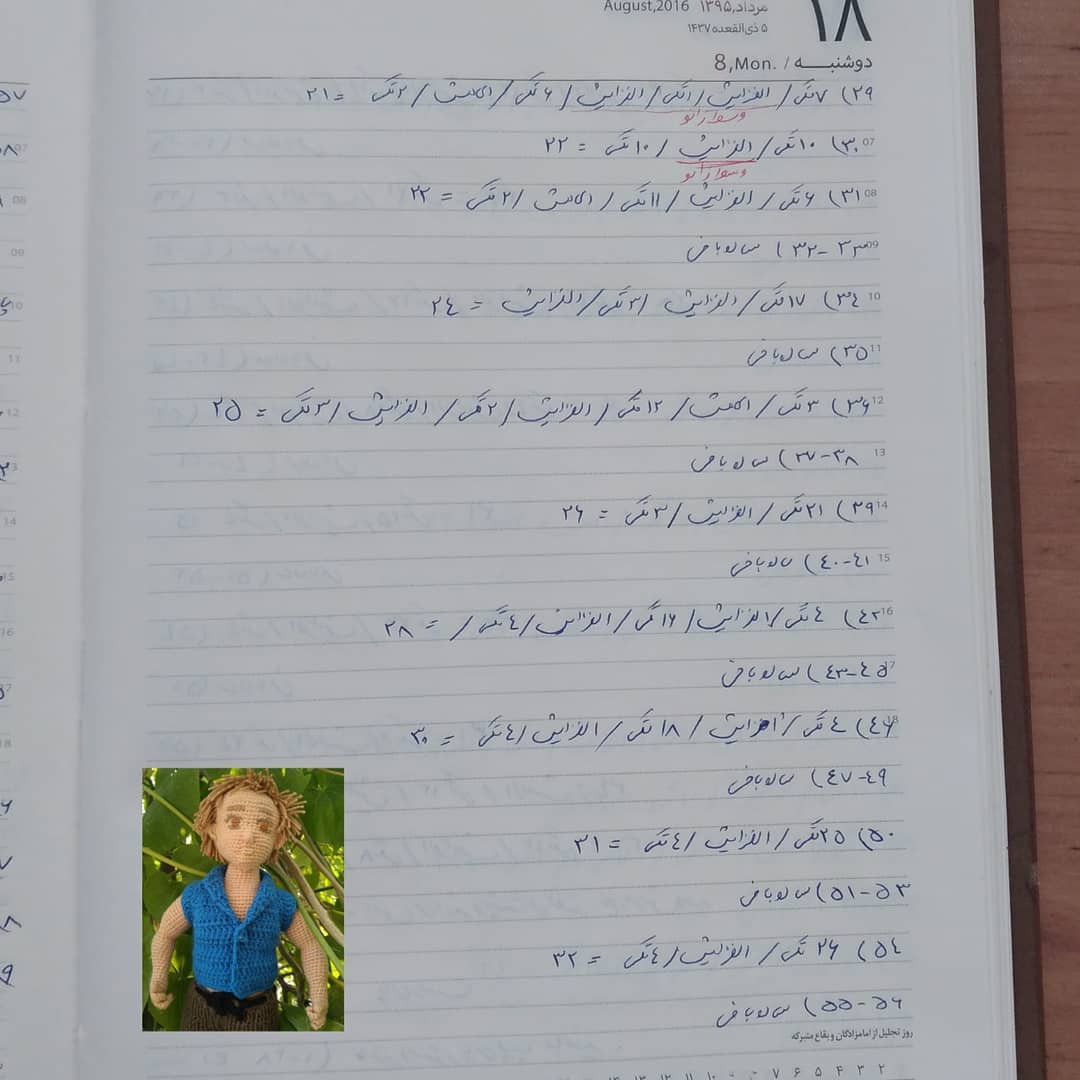 August,2016 مرداد,۱۳۹۵ ۱۸
۵ ذی‌القعده ۱۴۳۷
دوشنبه / .8,Mon
۲۹) ۷تکی / افزایش / ۱تکی / افزایش / ۶ تکی / کاهش / ۲تکی = ۲۱
وسط زانو
07 ۳۰) ۱۰تکی / افزایش / ۱۰تکی = ۲۲
وسط زانو
08 ۳۱) ۶تکی / افزایش / ۱۱تکی / کاهش / ۲تکی = ۲۲
09 ۳۲-۳۳) ساده بافی
10 ۳۴) ۱۷تکی / افزایش / ۳تکی / افزایش = ۲۴
11 ۳۵) ساده بافی
12 ۳۶) ۳تکی / کاهش / ۱۲تکی / افزایش / ۲تکی / افزایش / ۳تکی = ۲۵
13 ۳۷-۳۸) ساده بافی
14 ۳۹) ۲۱تکی / افزایش / ۳تکی = ۲۶
15 ۴۰-۴۱) ساده بافی
16 ۴۲) ۴تکی / افزایش / ۱۶تکی / افزایش / ۴تکی / = ۲۸
17 ۴۳-۴۵) ساده بافی
18 ۴۶) ۴تکی / افزایش / ۱۸تکی / افزایش / ۴تکی = ۳۰
۴۷-۴۹) ساده بافی
۵۰) ۲۵تکی / افزایش / ۴تکی = ۳۱
۵۱-۵۳) ساده بافی
۵۴) ۲۶تکی / افزایش / ۴تکی = ۳۲
۵۵-۵۶) ساده بافی
روز تجلیل از امامزادگان و بقاع متبرکه
۲ ۳ ۴ ۵ ۶ ۷